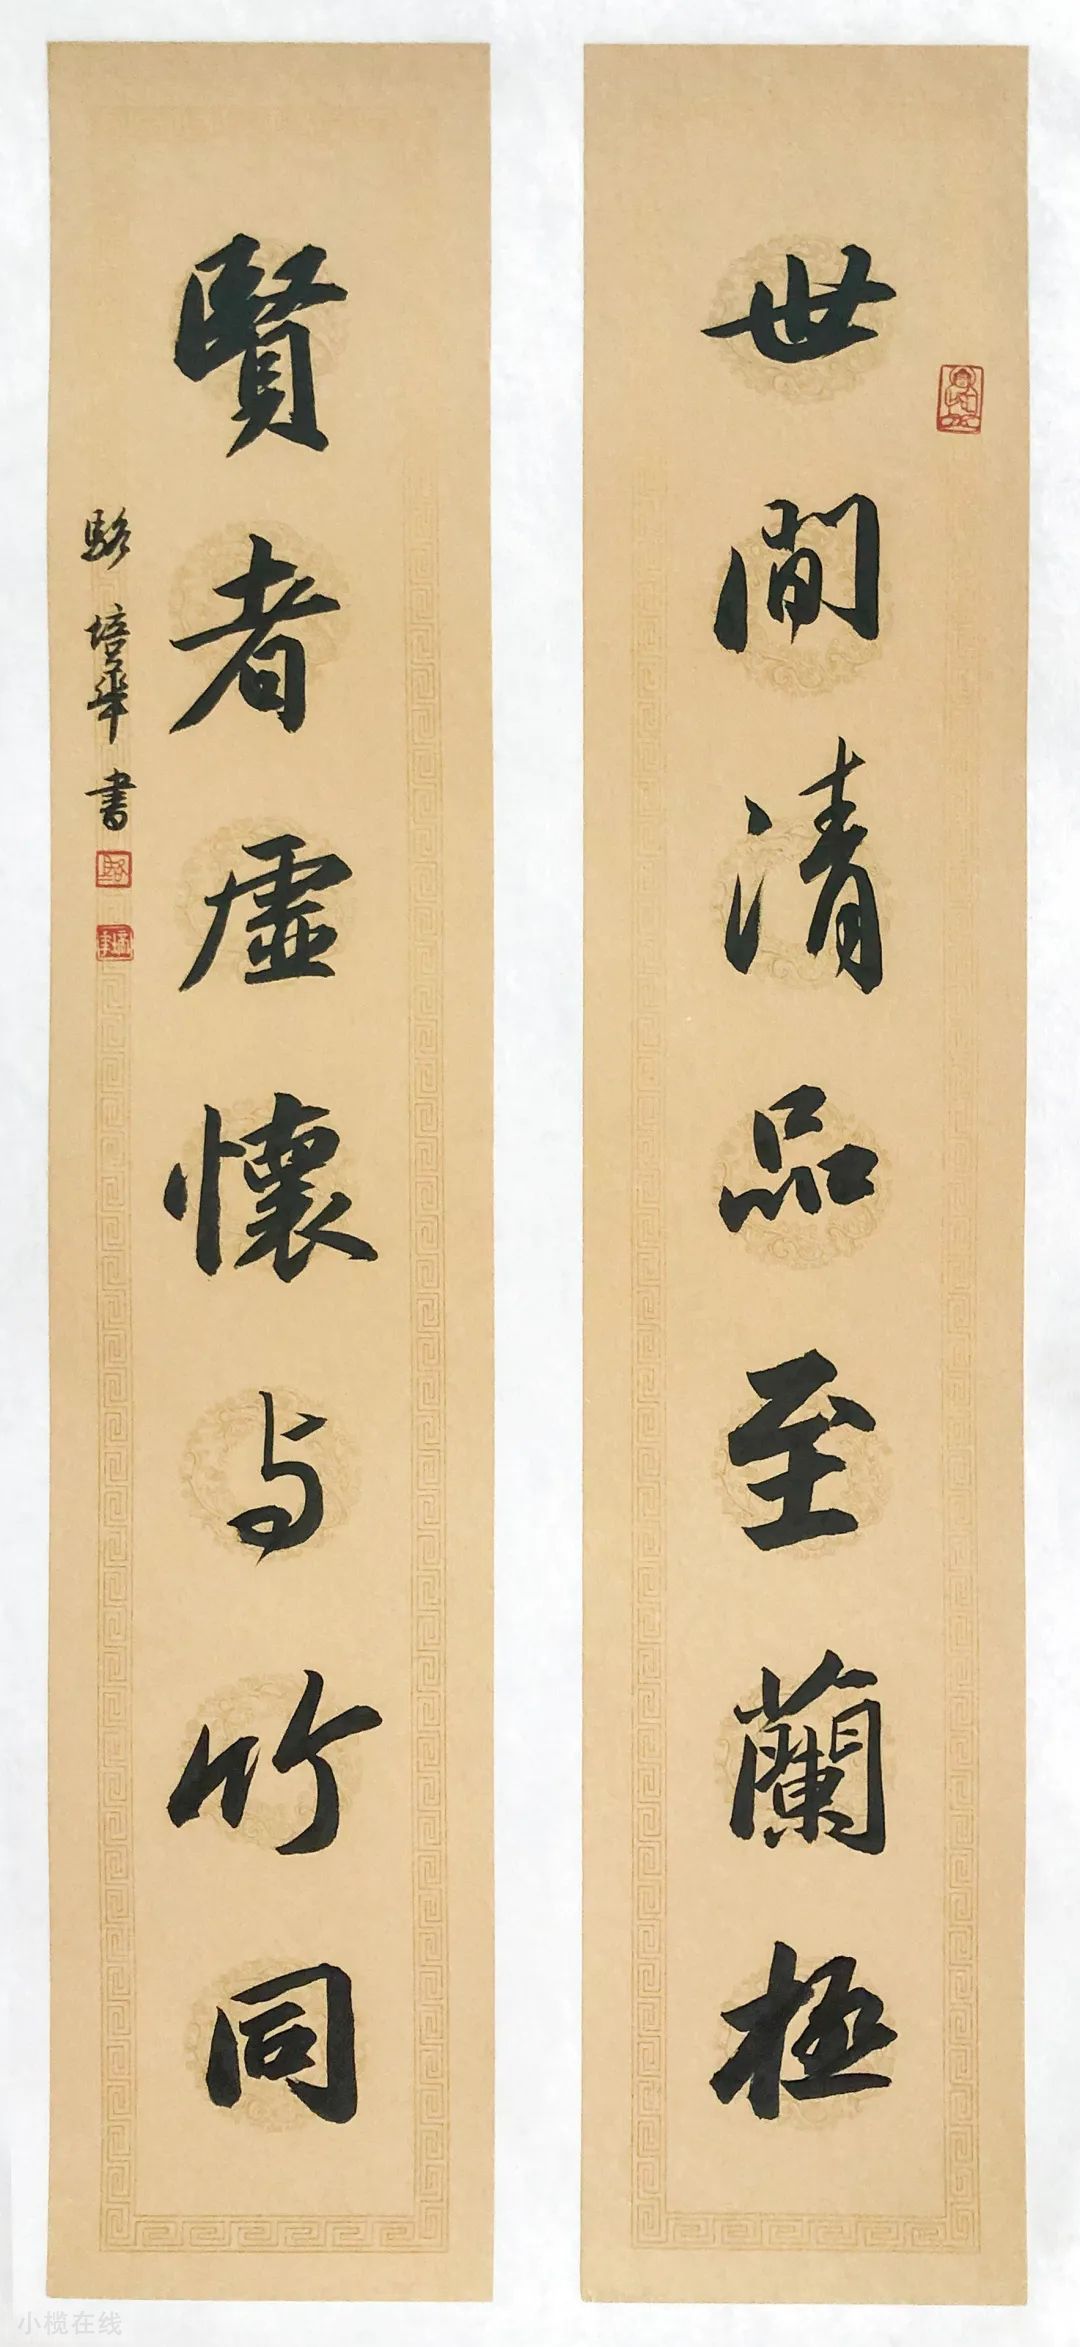 世間清品至蘭極
賢者虛懷与竹同
駱培華書
駱
培華
小榄在线